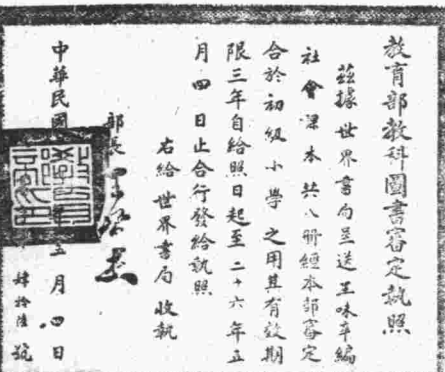 教育部教科圖書審定執照
茲據世界書局呈送王味辛編
社會課本共八冊經本部審定
合於初級小學之用其有效期
限三年自給照日起至二十六年五
月四日止合行發給執照
右給世界書局收執
部長王
中華民國 五月四日
肆拾陸號